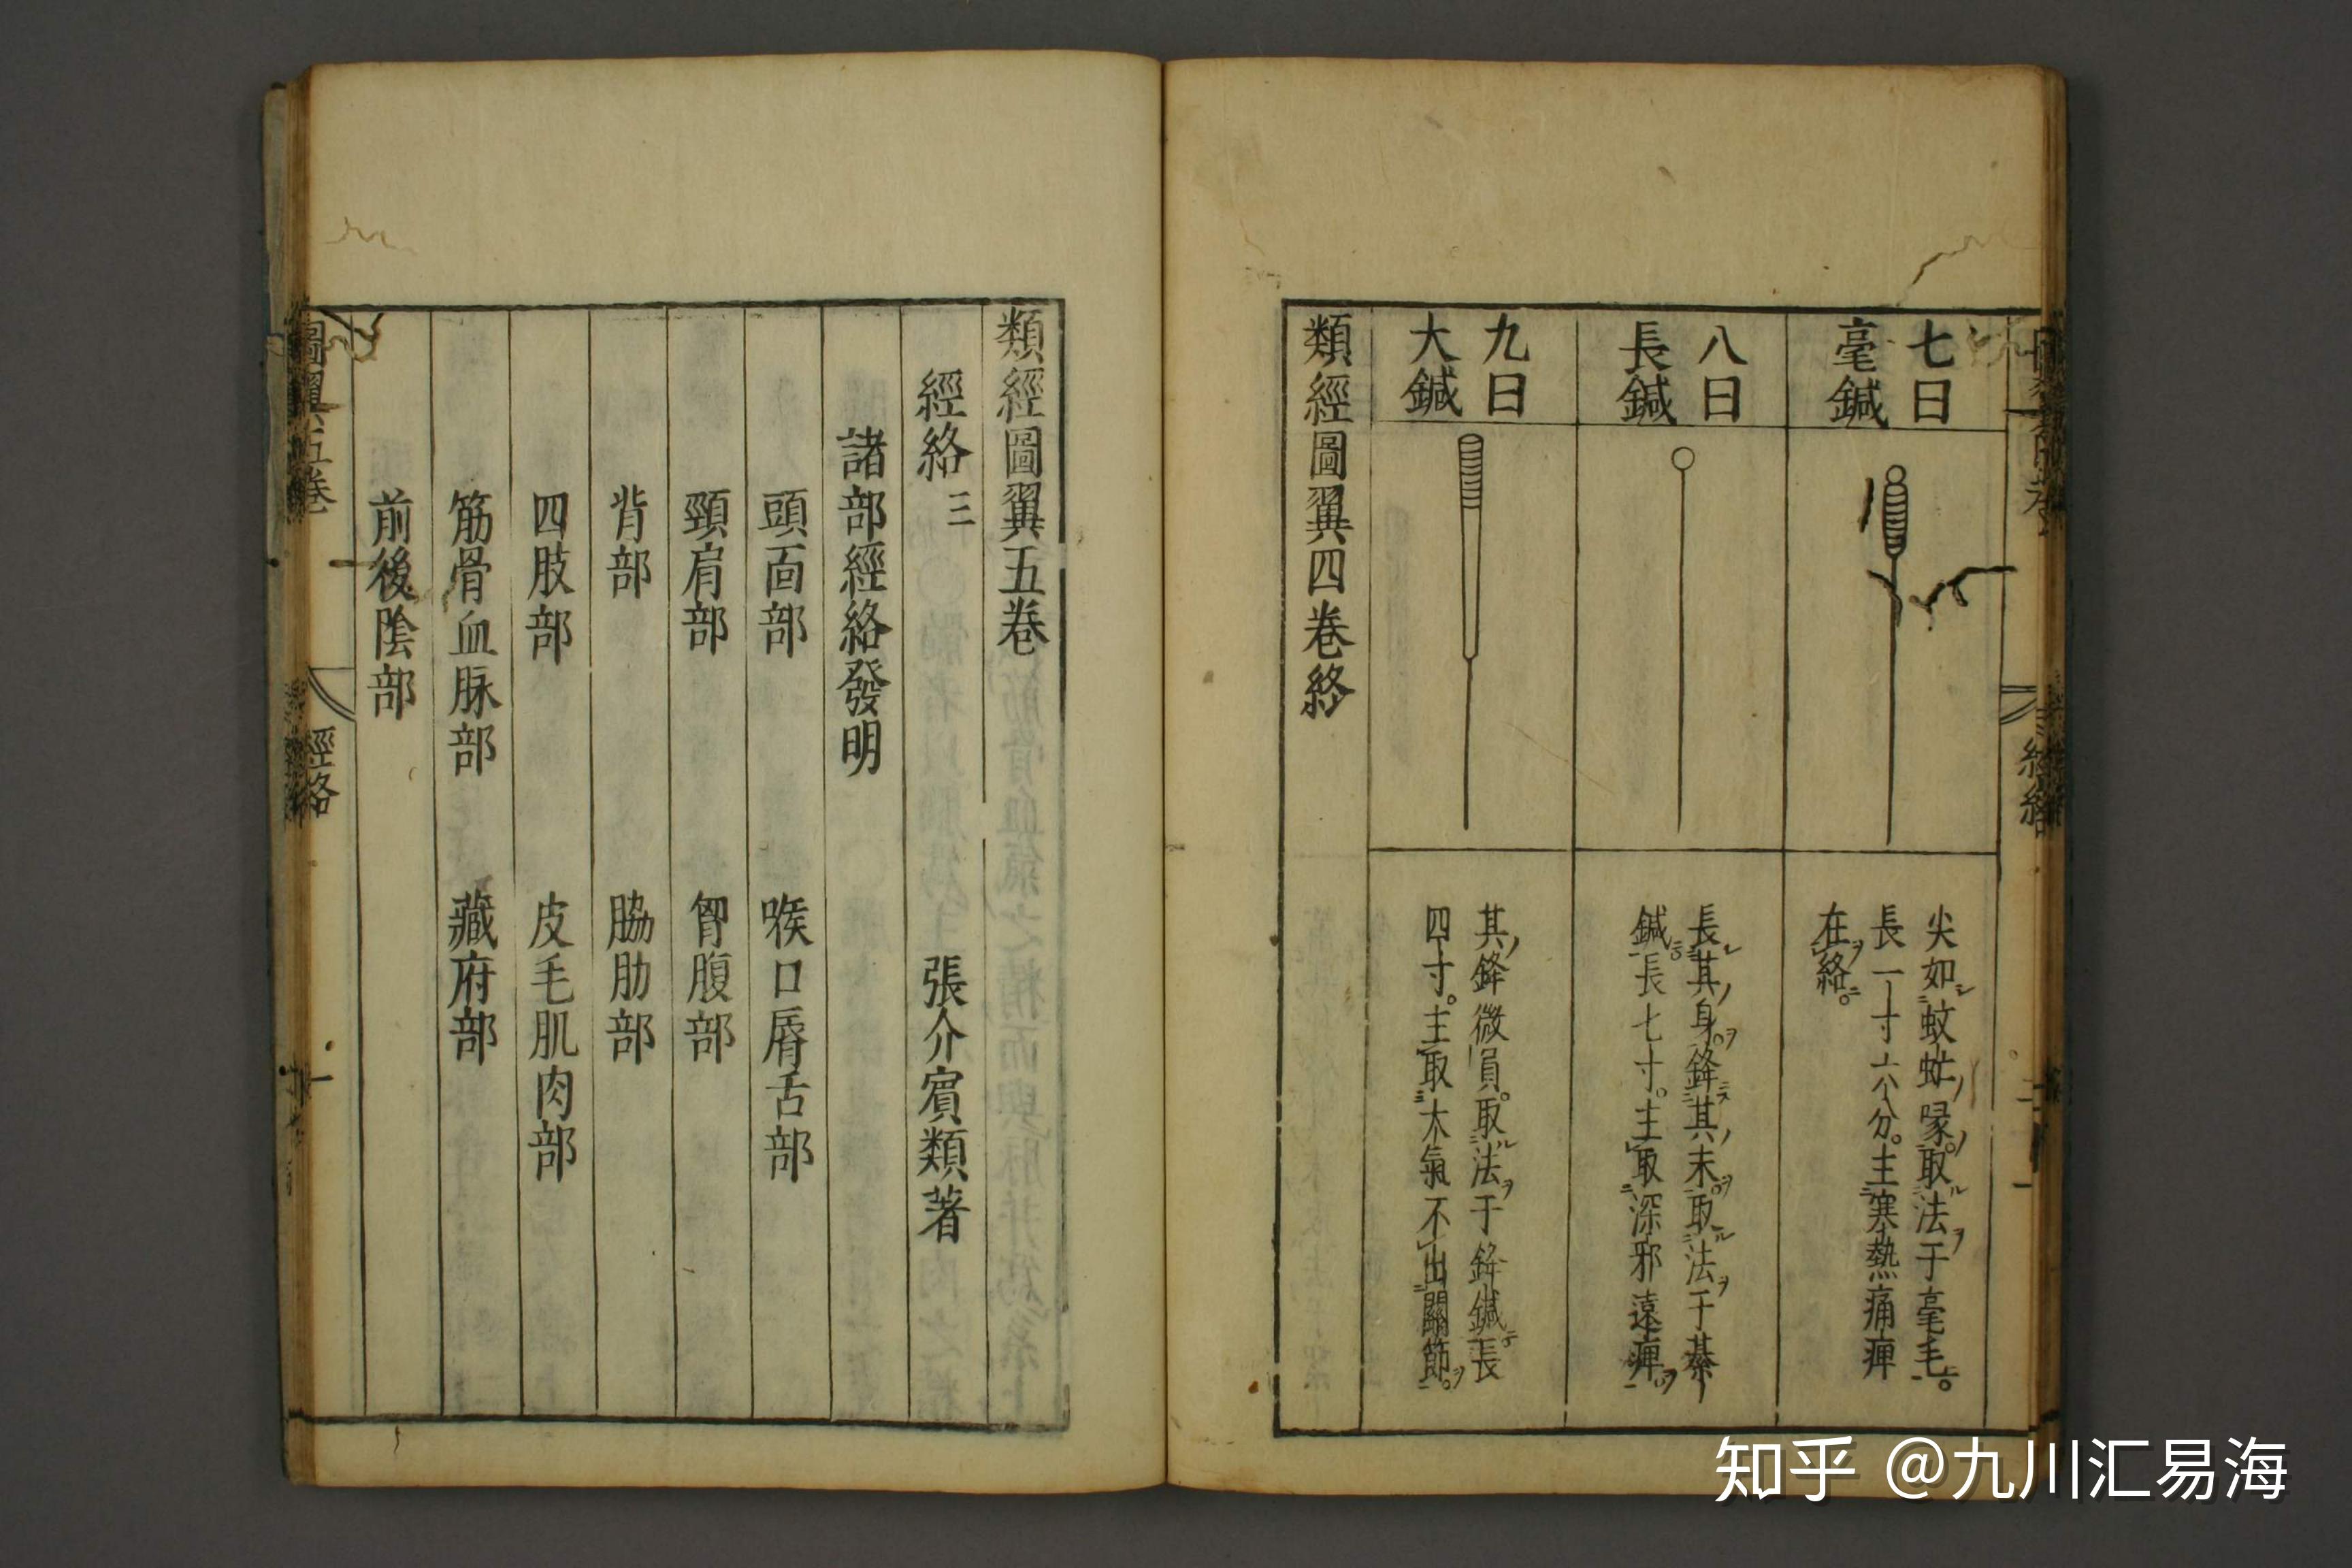 七曰
毫鍼
尖如蚊虻喙取法于毫毛
長一寸六分主寒熱痛痺
在絡
八曰
長鍼
長其身鋒其末取法于綦
鍼長七寸主取深邪遠痺
九曰
大鍼
其鋒微員取法于鋒鍼長
四寸主取大氣不出關節
類經圖翼四卷終
類經圖翼五卷
經絡三
張介賓類著
諸部經絡發明
頭面部
喉口脣舌部
頸肩部
胷腹部
背部
脇肋部
四肢部
皮毛肌肉部
筋骨血脉部
藏府部
前後陰部
圖翼五卷
經絡
知乎 @九川汇易海